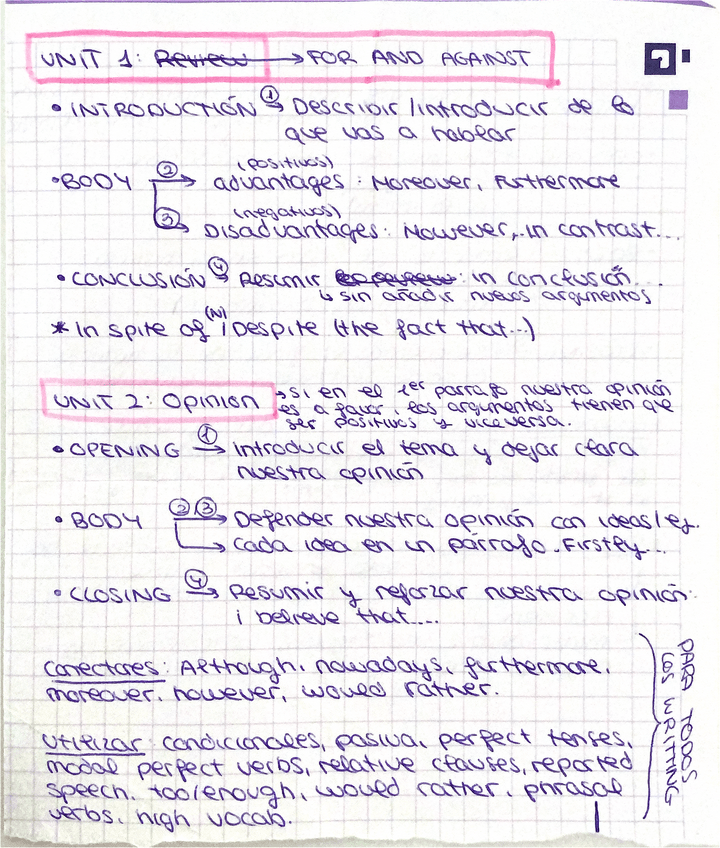 UNIT 1: Review → FOR AND AGAINST
• INTRODUCTIÓN ① → Describir/introducir de lo
que vas a hablar
(positivos)
• BODY ② → advantages: Moreover, Furthermore
(negativos)
③ → Disadvantages: However, in contrast...
• CONCLUSIÓN ④ → Resumir: in conclusión...
↳ sin añadir nuevos argumentos
* In spite of (N) / Despite (the fact that...)
UNIT 2: Opinion → Si en el 1er párrafo nuestra opinión
es a favor, los argumentos tienen que
ser positivos y viceversa.
• OPENING ① → introducir el tema y dejar clara
nuestra opinión
• BODY ② ③ → Defender nuestra opinión con ideas/ej.
→ Cada idea en un párrafo. Firstly...
• CLOSING ④ → Resumir y reforzar nuestra opinión:
i believe that....
Conectores: Although, nowadays, furthermore,
moreover, however, would rather.
Utilizar: condicionales, pasiva, perfect tenses,
modal perfect verbs, relative clauses, reported
speech, too/enough, would rather, phrasal
verbs, high vocab.
PARA TODOS
LOS WRITTING